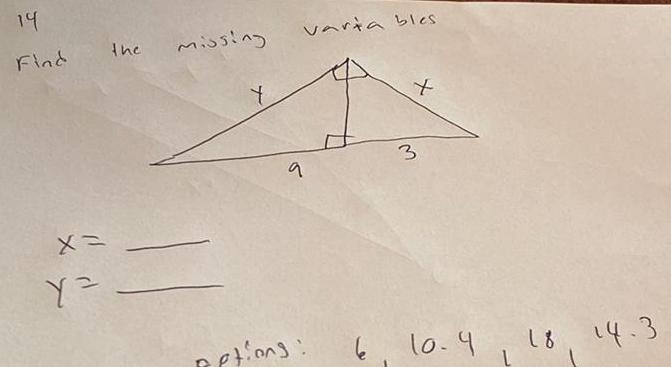 14
Find the missing variables
y x
9 3
x=
y=
options: 6, 10.4, 18, 14.3